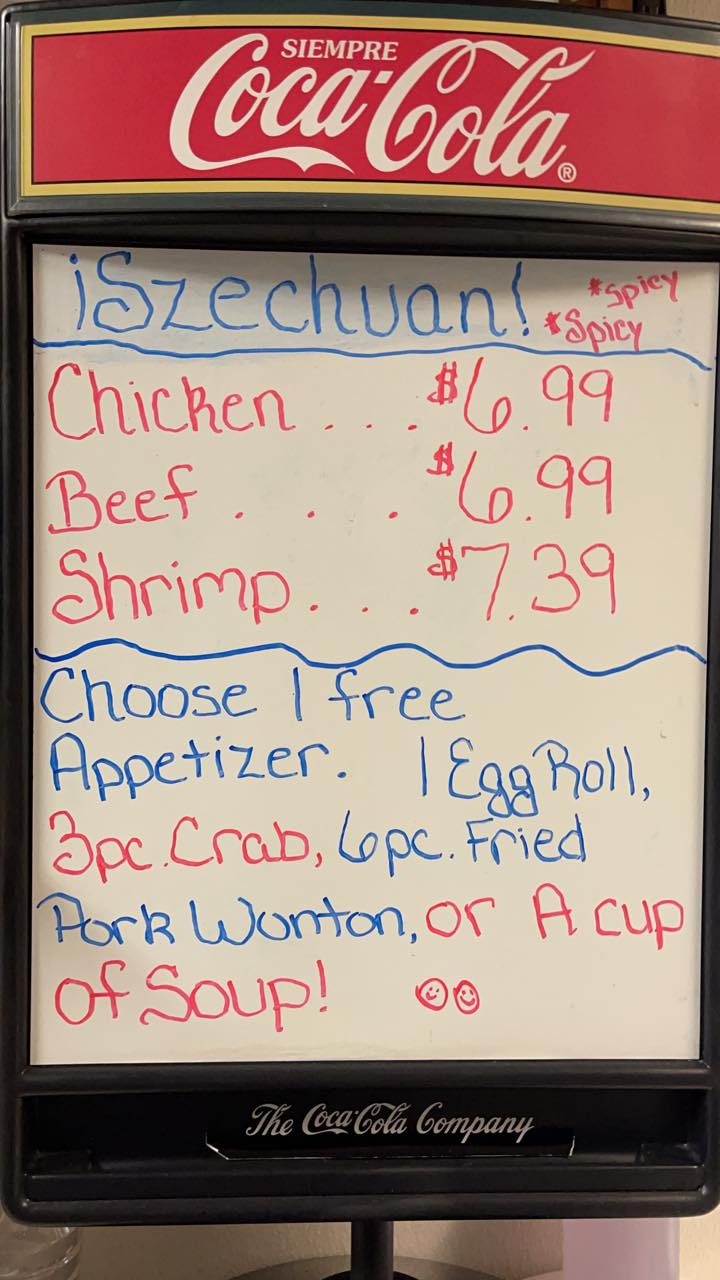 SIEMPRE
Coca-Cola®
¡Szechuan! *Spicy
*Spicy
Chicken . . . $6.99
Beef . . . $6.99
Shrimp . . . $7.39
Choose 1 free
Appetizer. 1 Egg Roll,
3pc. Crab, 6pc. Fried
Pork Wonton, or A cup
of Soup!
The Coca-Cola Company